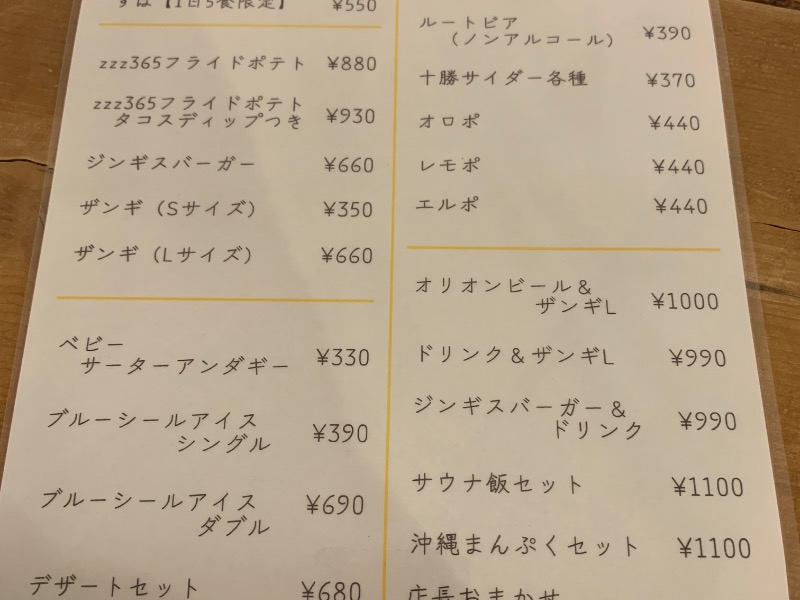 そば【1日5食限定】 ¥550
zzz365フライドポテト ¥880
zzz365フライドポテト
タコスディップつき ¥930
ジンギスバーガー ¥660
ザンギ（Sサイズ） ¥350
ザンギ（Lサイズ） ¥660
ベビー
サーターアンダギー ¥330
ブルーシールアイス
シングル ¥390
ブルーシールアイス
ダブル ¥690
デザートセット ¥680
ルートビア
（ノンアルコール） ¥390
十勝サイダー各種 ¥370
オロポ ¥440
レモポ ¥440
エルポ ¥440
オリオンビール＆
ザンギL ¥1000
ドリンク＆ザンギL ¥990
ジンギスバーガー＆
ドリンク ¥990
サウナ飯セット ¥1100
沖縄まんぷくセット ¥1100
店長おまかせ